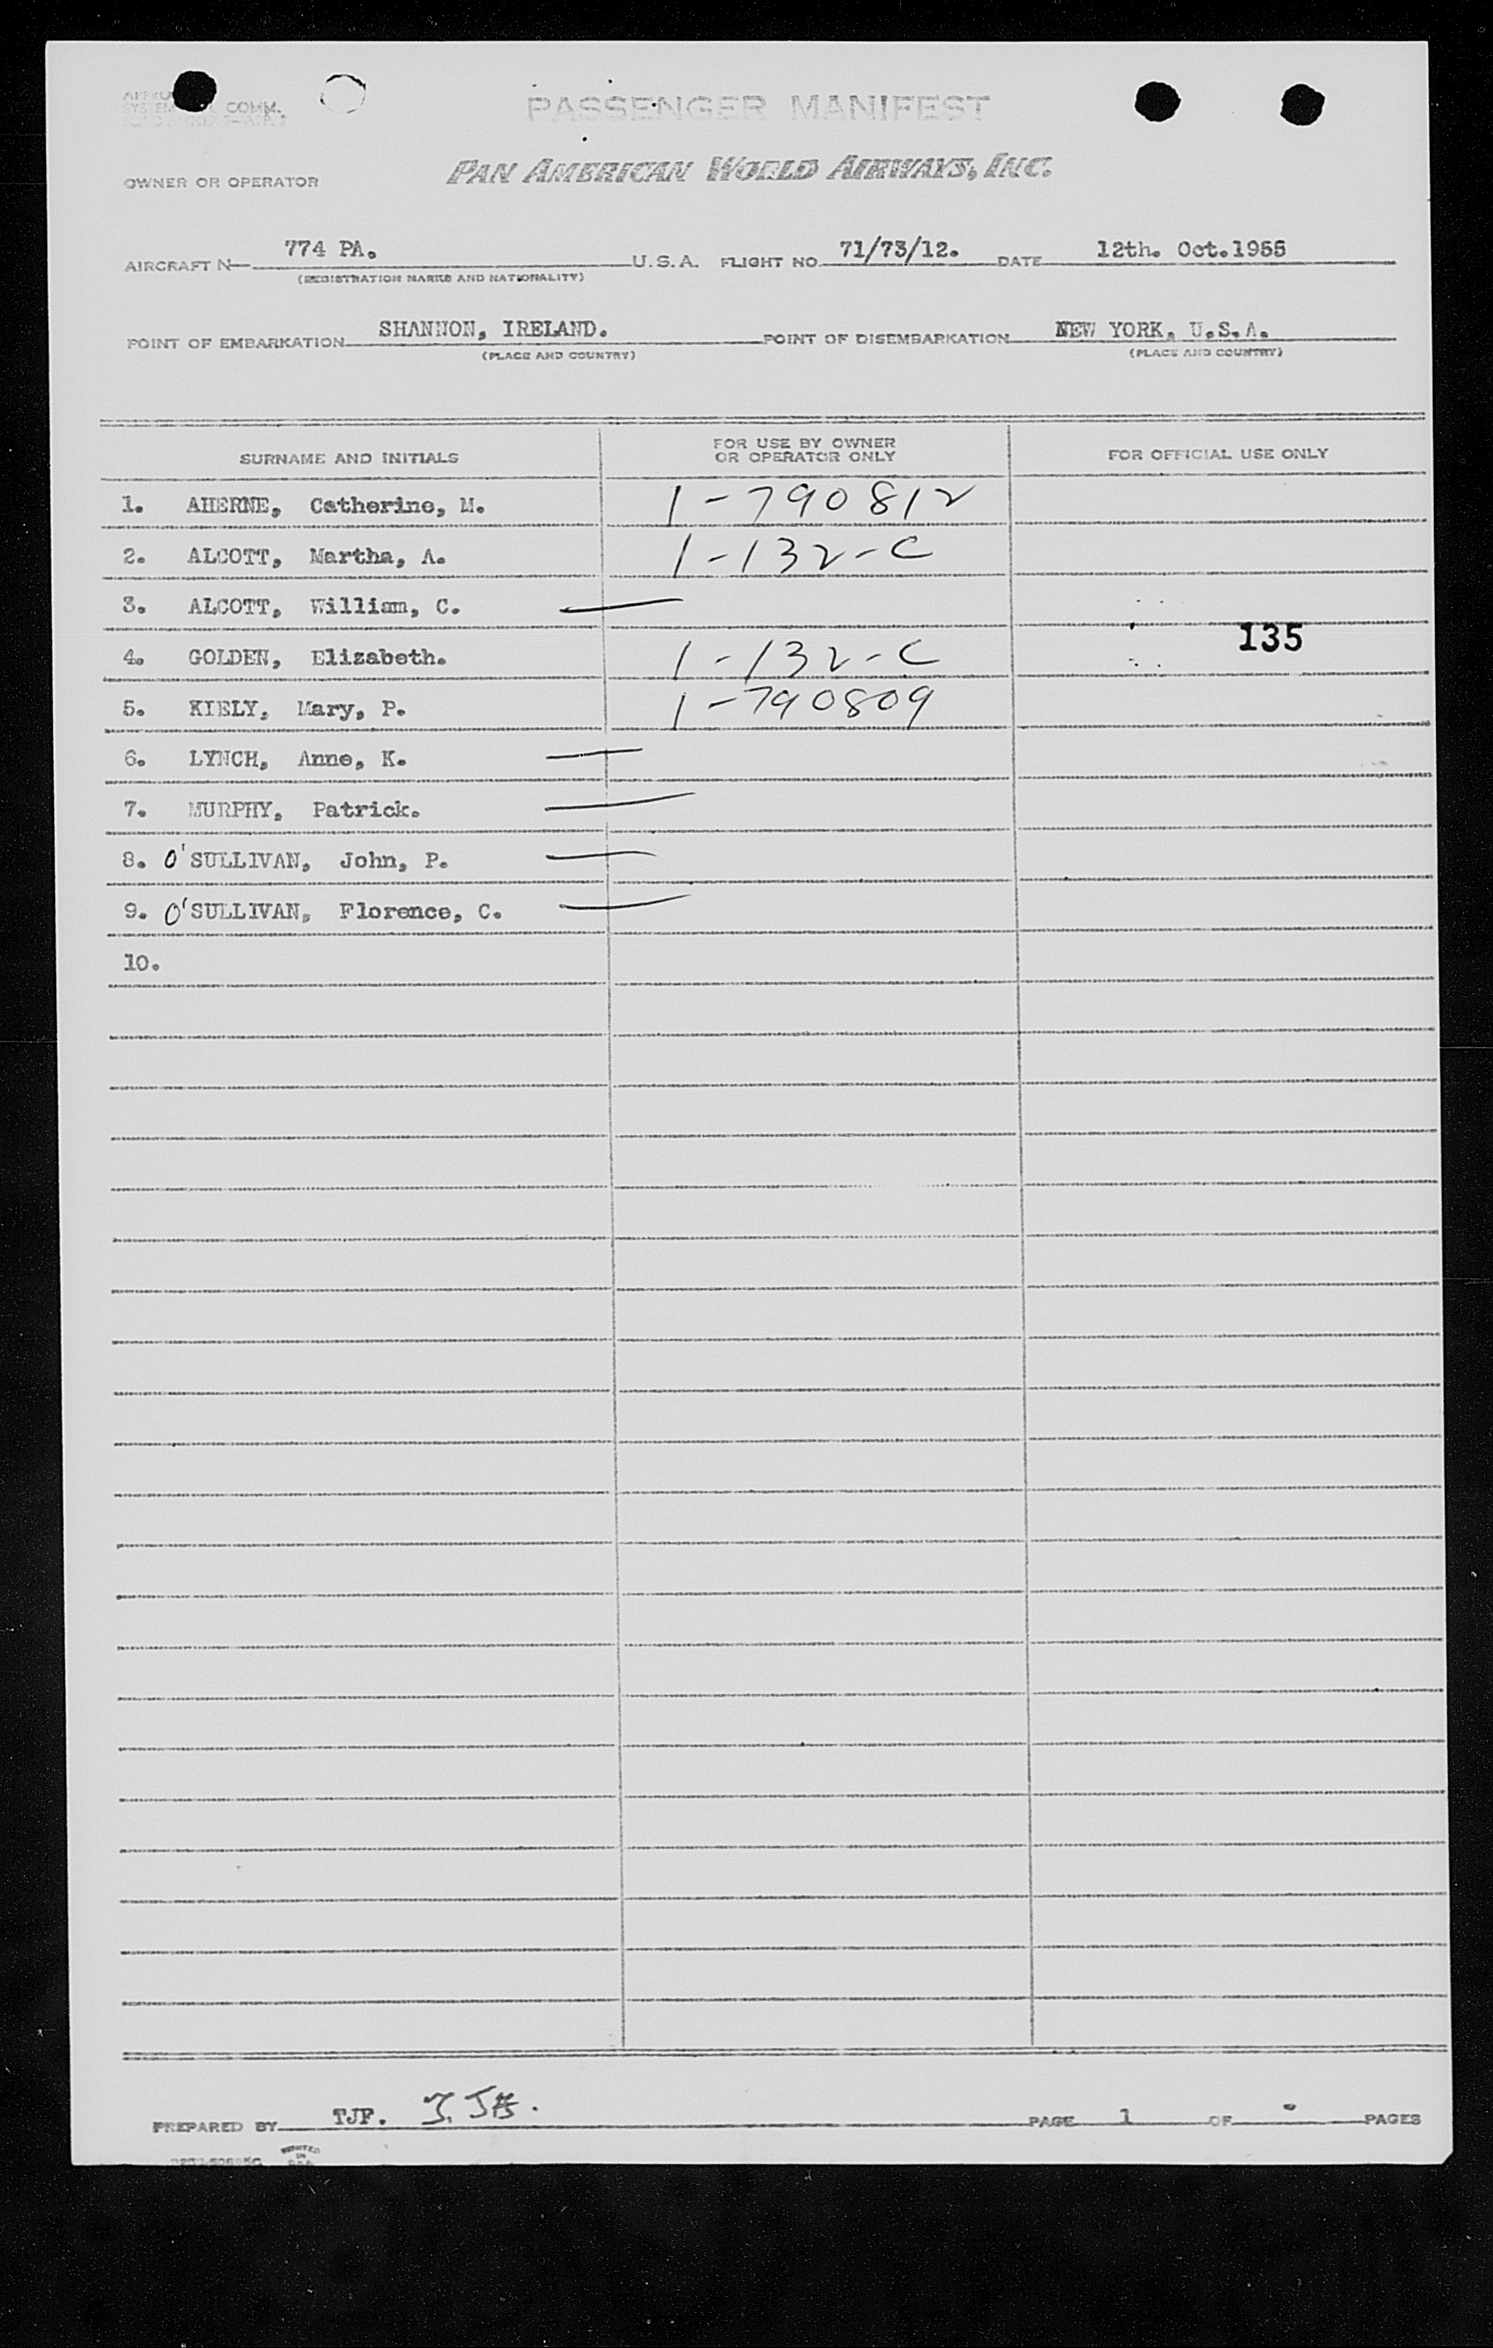 COMM.
PASSENGER MANIFEST
OWNER OR OPERATOR PAN AMERICAN WORLD AIRWAYS, INC.
AIRCRAFT N 774 PA. U.S.A. FLIGHT NO. 71/73/12. DATE 12th. Oct.1955
(REGISTRATION MARKS AND NATIONALITY)
POINT OF EMBARKATION SHANNON, IRELAND. POINT OF DISEMBARKATION NEW YORK, U.S.A.
(PLACE AND COUNTRY) (PLACE AND COUNTRY)
SURNAME AND INITIALS FOR USE BY OWNER OR OPERATOR ONLY FOR OFFICIAL USE ONLY
1. AHERNE, Catherine, M. 1-790812
2. ALCOTT, Martha, A. 1-132-C
3. ALCOTT, William, C. —
135
4. GOLDEN, Elizabeth. 1-132-C
5. KIELY, Mary, P. 1-790809
6. LYNCH, Anne, K. —
7. MURPHY, Patrick. —
8. O'SULLIVAN, John, P. —
9. O'SULLIVAN, Florence, C. —
10.
PREPARED BY TJF. PAGE 1 OF - PAGES
PRINTED
IN